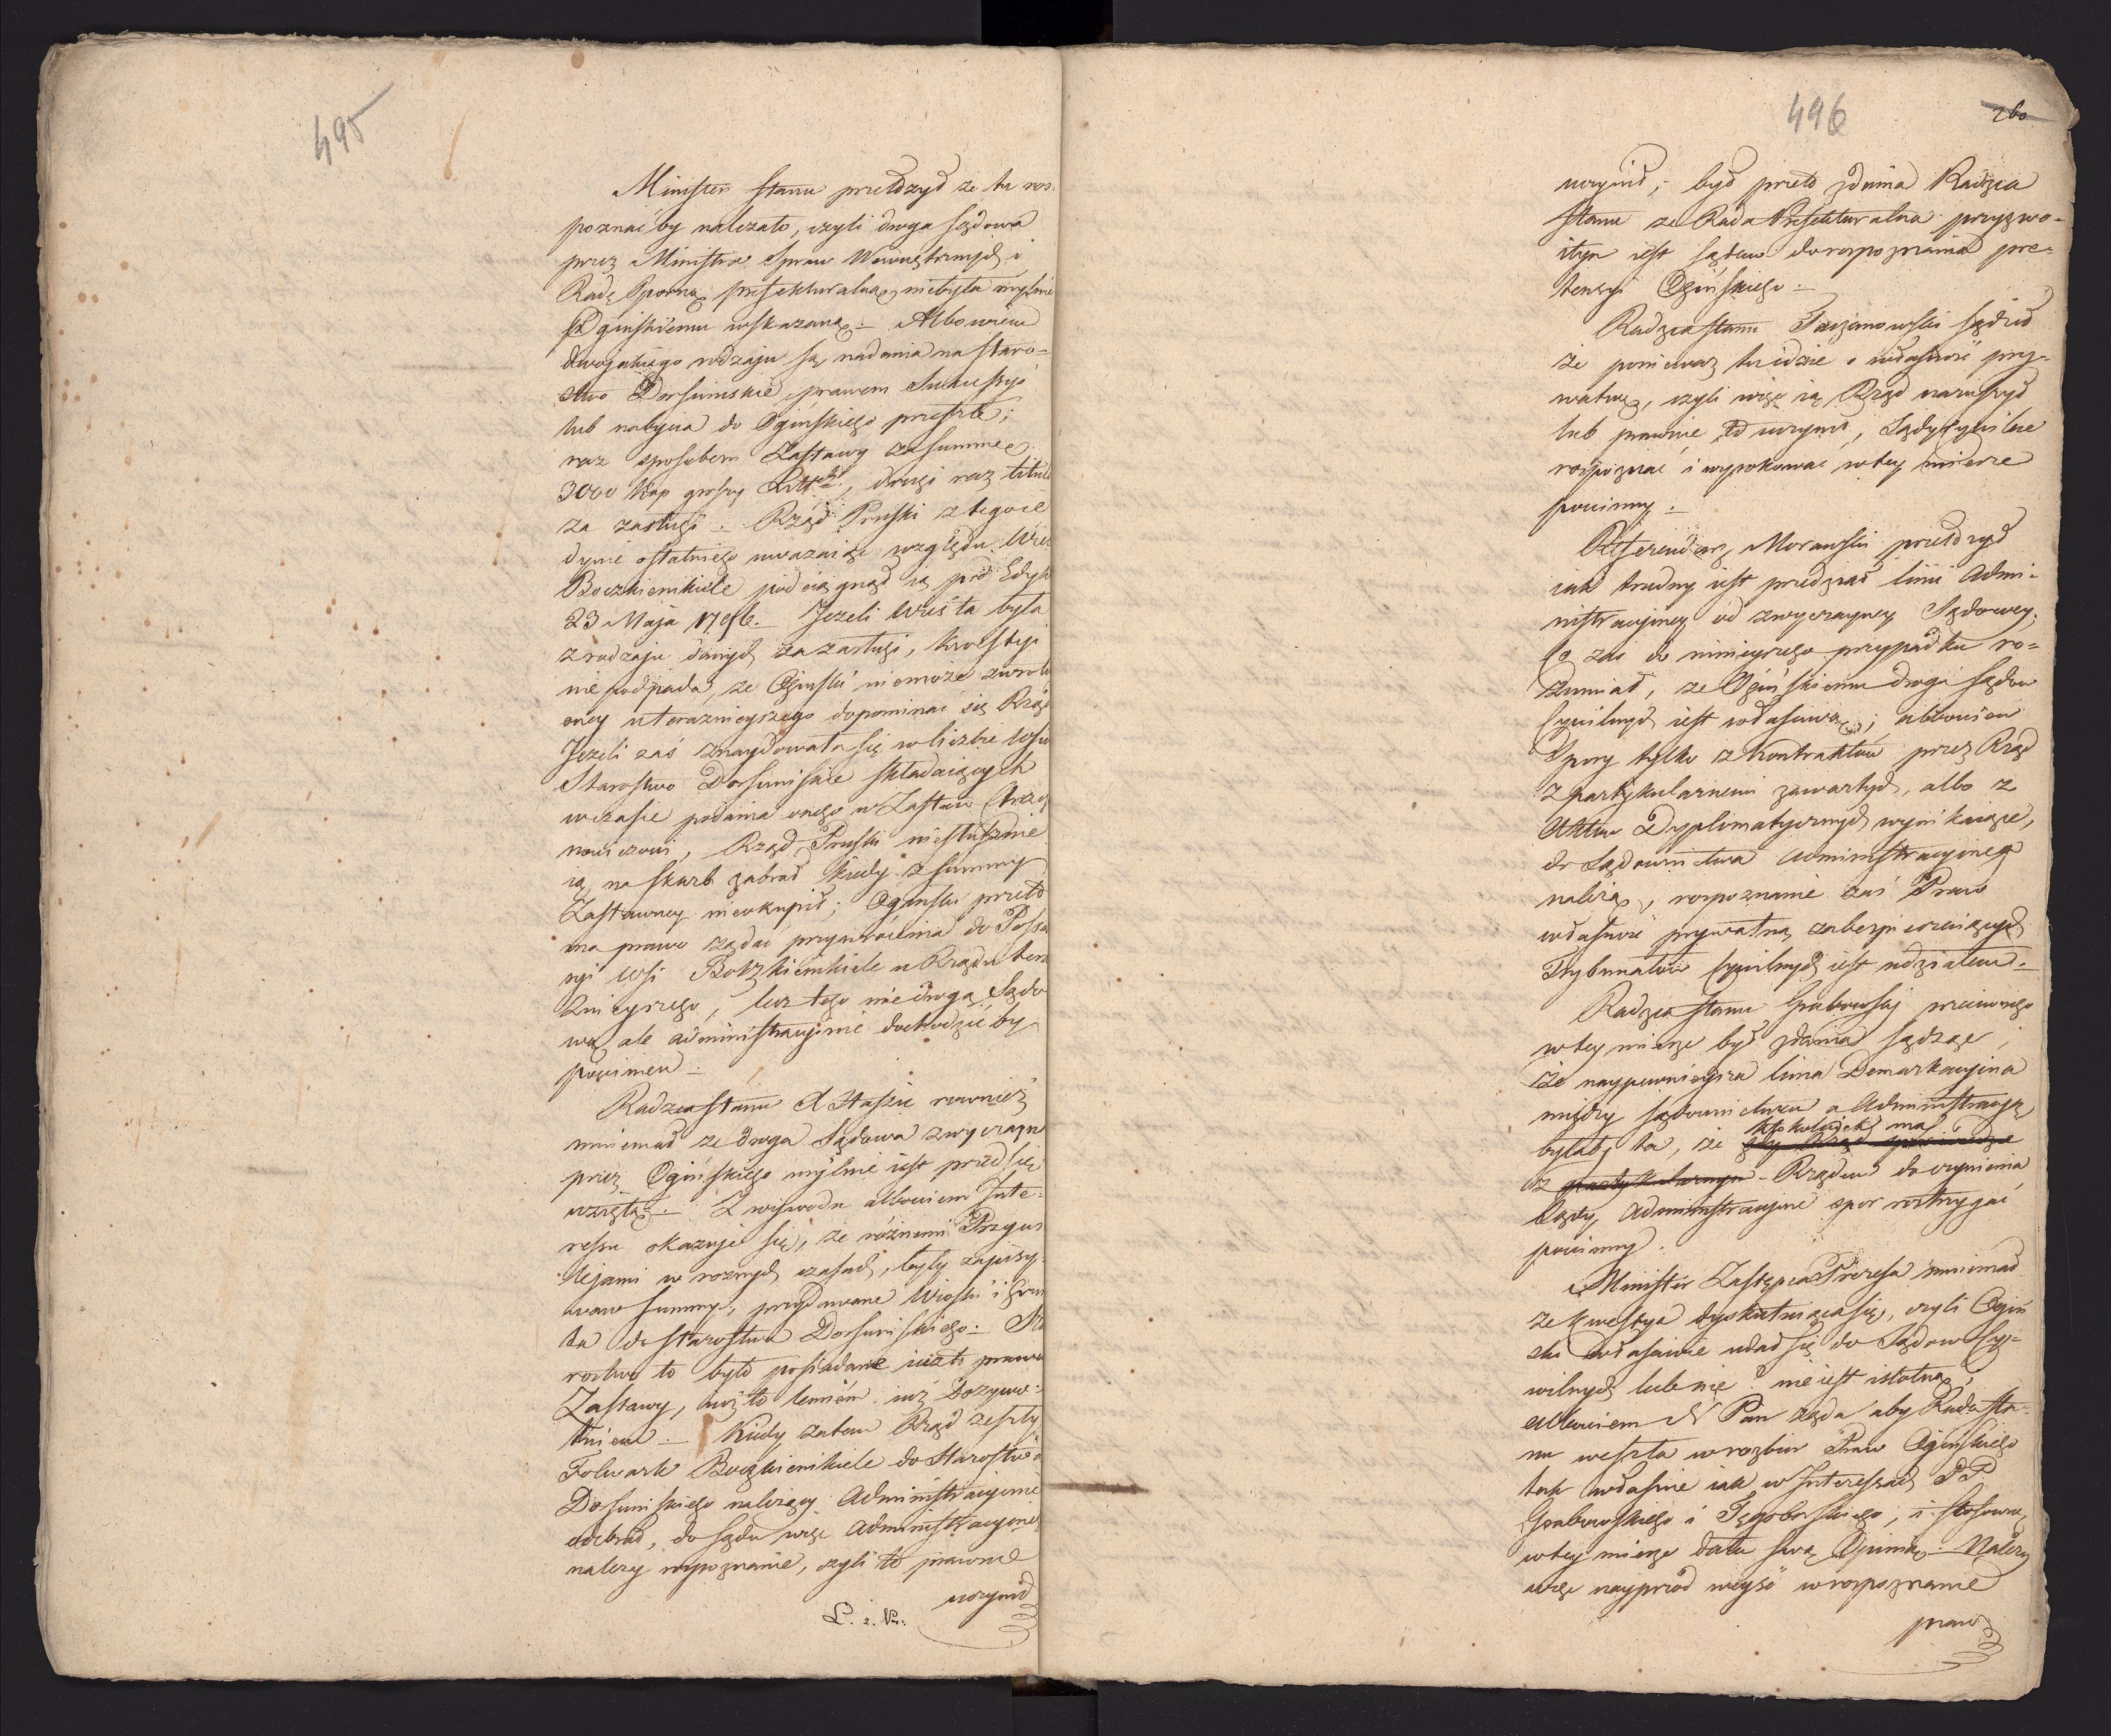 495
Minister Stanu przełożył ze tu roz
poznać by należało, czyli droga sądowa
przez Ministra Spraw Wewnętrznych i
Radę Sporną prefekturalną niebyła mylnie
Ogińskiemu wskazaną :- Albowiem
dwojakiego rodzaju są nadania na Staro=
stwo Dorsuniskie, prawem Sukcessyi
lub nabycia do Ogińskiego przeszłe;
raz sposobem Zastawy za summę
3000 kop groszy Litt:, drugi raz titulo
za zasługi. Rząd Pruski z tego ie
dynie ostatniego uważaiąc względu Wieś
Boczkienikiele podciągnął ią pod Edykt
23 Maja 1796. Jeżeli Wieś ta była
z rodzaju danych za zasługi, kwestyi
nie podpada, ze Ogiński niemoże zwrotu
oney u teraznieyszego dopominać się Rządu
Jeżeli zaś znaydowała się w liczbie Wsiów
Starostwo Dorsuniskie składaiących
w czasie podania onego w Zastaw
nowiczowi, Rząd Pruski niesłusznie
ią na skarb zabrał kiedy z summy
Zastawney nieokupił; Ogiński przeto
ma prawo żądać przywrócenia do Posse
syi Wsi Boczkienikiele u Rządu tera
znieyszego, lecz tego nie drogą Sądo
wą ale administracyinie dochodzić by
powinien -
Radzca Stanu X Staszic rownież
mniemał ze droga Sądowa zwyczayna
przez Ogińskiego mylnie iest przedsię
wziętą - Z wywodu albowiem Inte=
ressu okazuje się, ze różnemi Przywi
lejami w roznych czasach, były zapisy
wane summy, przydawane Wioski i Grun
ta do Starostwa Dorsuniskiego - Sta
rostwo to było posiadane iużto prawem
Zastawy, iużto lennem iuż Dożywo=
tniem - Kiedy zatem Rząd zeszły
Folwark Boczkienikiele do Starostwa
Dorsuniskiego należący Administracyinie
odebrał, do Sądu więc Administracyinego
należy rozpoznanie, czyli to prawnie
uczynił
L. 2. Nr:
496
260
uczynił; był przeto zdania Radzca
Stanu ze Rada Prefekturalna przyzwo=
itym iest sądem do rozpoznania pre=
tensyi Ogińskiego -
Radzca Stanu Tarzanowski sądził
że ponieważ tu idzie o własność pry=
watną, czyli więc ią Rząd naruszył
lub prawnie to uczynił, Sądy Cywilne
rozpoznać i wyrokować w tey mierze
powinny -
Referendarz Morawski przełożył
iak trudny iest przedział linii Admi=
nistracyiney od zwyczayney Sądowey,
Co zaś do ninieyszego przypadku ro=
zumiał, ze Ogińskiemu droga Sądów
Cywilnych iest właściwą; albowiem
Spory tylko z Kontraktów przez Rząd
z partykularnemi zawartych, albo z
Aktów Dyplomatycznych wynikaiące,
do Sądownictwa administracyinego
należą, rozpoznanie zaś Praw
własność prywatną zabezpieczaiących
Trybunałów Cywilnych iest udziałem -
Radzca Stanu Grabowski przeciwnego
w tey mierze był zdania sądząc,
że naypewnieysza linia Demarkacyina
między sądownictwem a Administracyą
byłaby ta, że ktokolwiek ma
z Rządem do czynienia
Sądy Administracyine spor rostrzygać
powinny.
Minister Zastępca Prezesa mniemał
ze kwestya dyskutuiąca się, czyli Ogiń
ski właściwie udał się do Sądów Cy=
wilnych lub nie nie iest istotną,
albowiem N Pan żąda aby Rada Sta=
nu weszła w rozbior Praw Ogińskiego
tak właśnie iak w Interessach PP.
Grabowskiego i Tęgoborskiego, i stosowną
w tey mierze dała swą Opinią - Należy
więc nayprzód weyść w rozpoznanie
praw